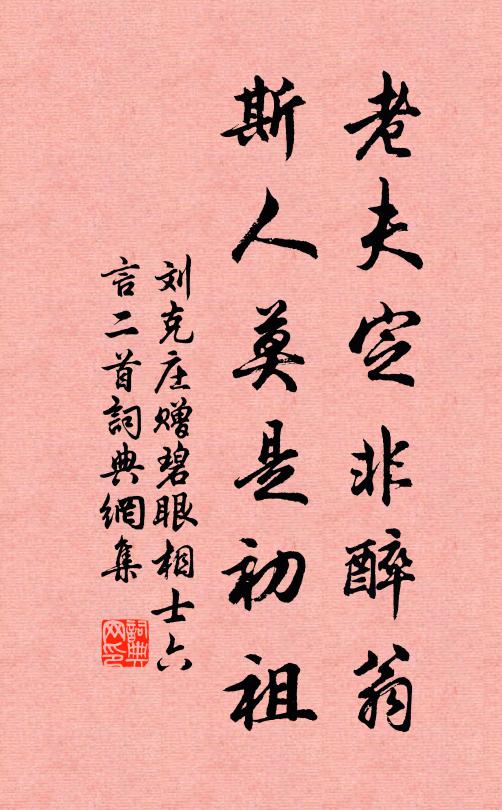 老夫定非醉翁
斯人莫是初祖
刘克庄赠碧眼相士六
言二首詞典網集
詞典
网印